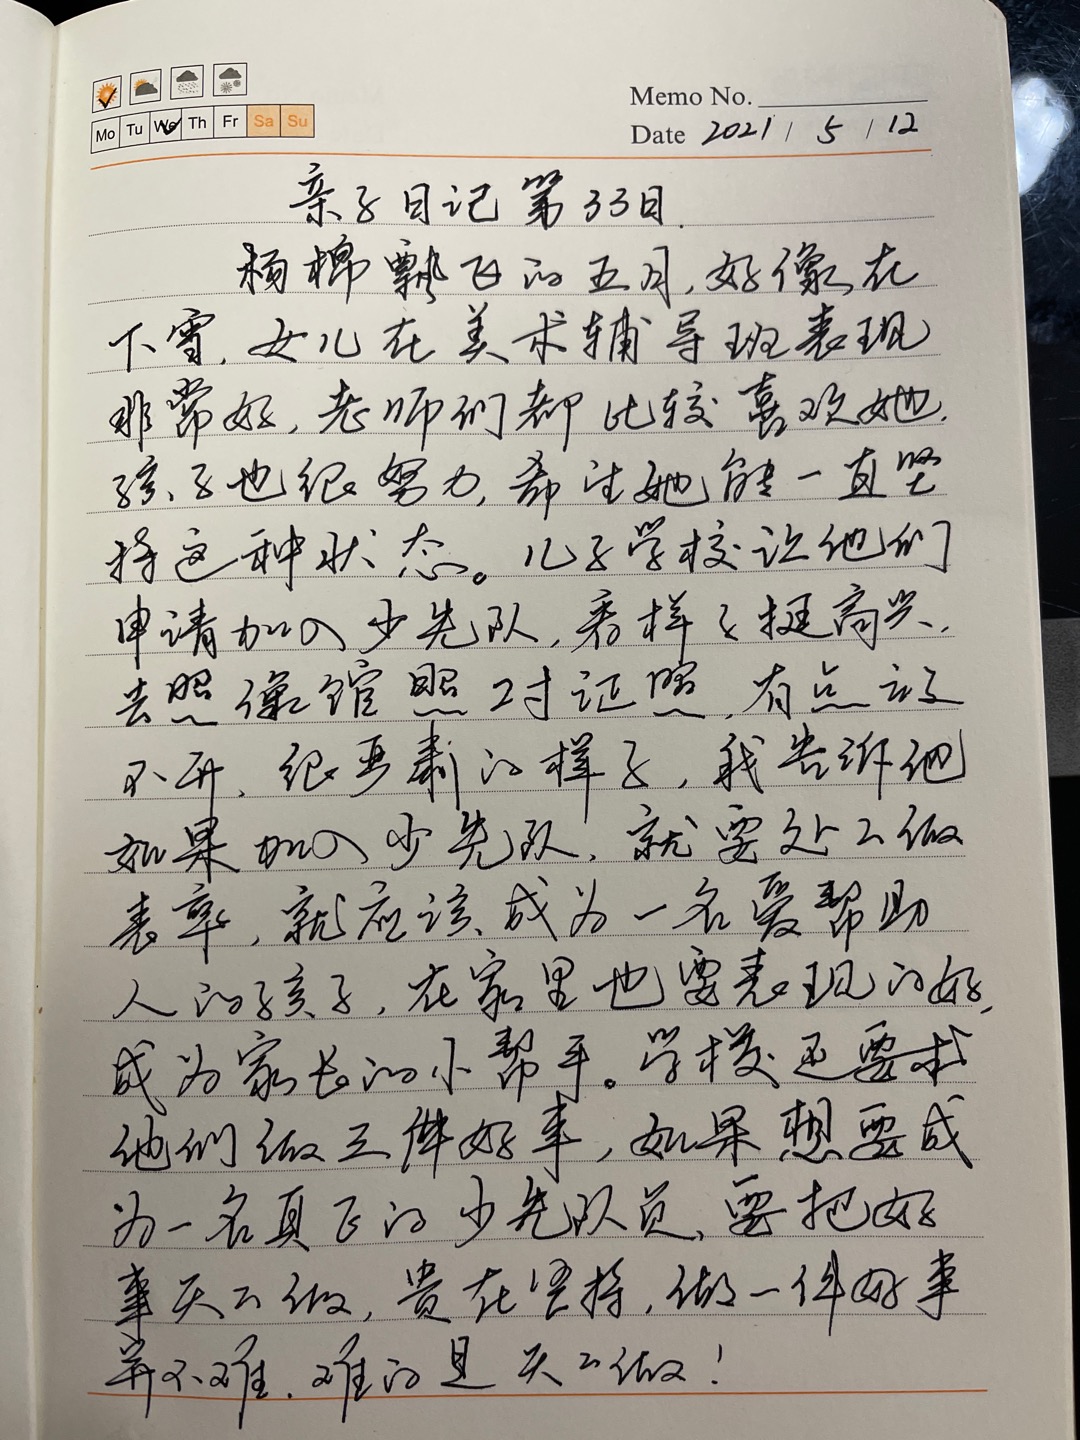 Memo No.
Mo Tu We Th Fr Sa Su
Date 2021 / 5 / 12
亲子日记第33日.
杨棉飘飞的五月,好像在
下雪,女儿在美术辅导班表现
非常好,老师们都比较喜欢她.
孩子也很努力,希望她能一直坚
持这种状态。儿子学校让他们
申请加入少先队,看样子挺高兴,
去照像馆照2寸证照,有点放
不开,很呆刺的样子,我告诉他
如果加入少先队,就要处处做
表率,就应该成为一名爱帮助
人的孩子,在家里也要表现的好,
成为家长的小帮手。学校还要求
他们做三件好事,如果想要成
为一名真正的少先队员,要把好
事天天做,贵在坚持,做一件好事
并不难,难的是天天做!